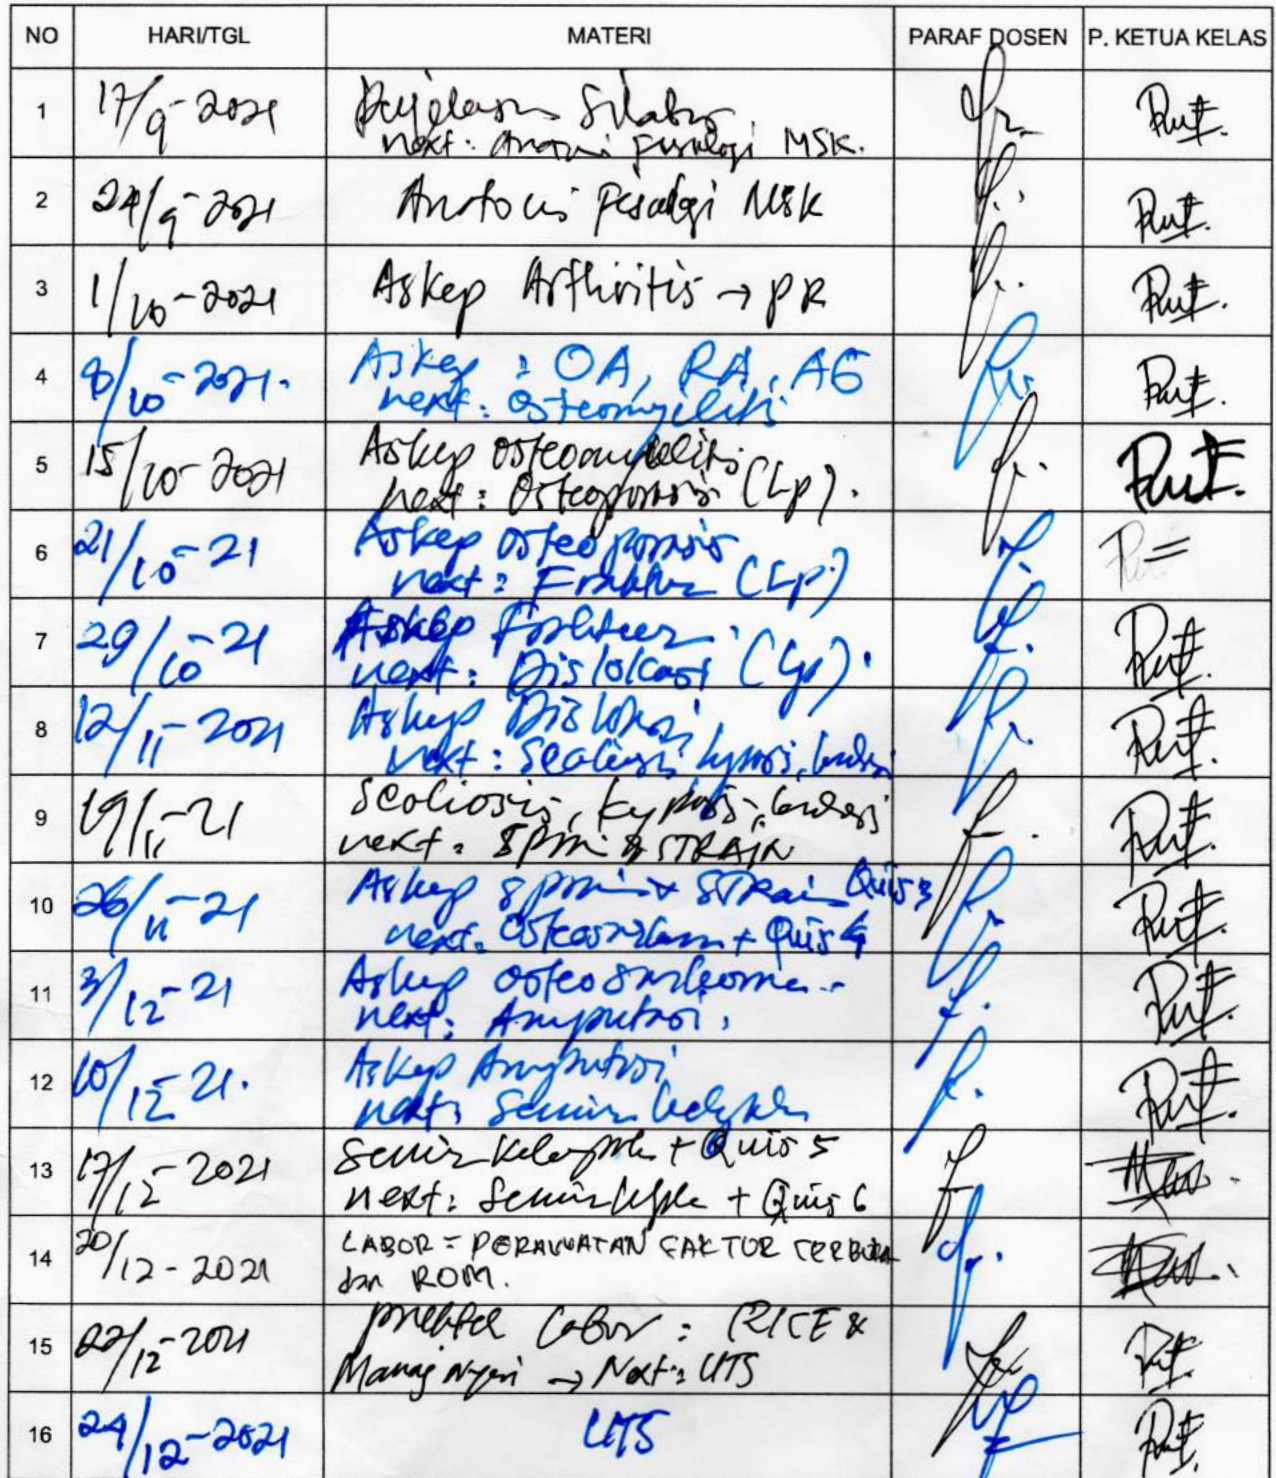 NO HARI/TGL MATERI PARAF DOSEN P. KETUA KELAS
1 17/9-2021 Penjelasan Silabus
next: Anatomi fisiologi MSK.
2 24/9-2021 Anatomi fisiologi MSK
3 1/10-2021 Askep Arthritis → PR
4 8/10-2021. Askep : OA, RA, AG
next: Osteomyelitis
5 15/10-2021 Askep osteomyelitis
next: Osteoporosis (Lp).
6 21/10-21 Askep osteoporosis
next: Fraktur (Lp)
7 29/10-21 Askep
next: Dislokasi (Lp).
8 12/11-2021 Askep Dislokasi
next: Scoliosis, kyposis, lordosis
9 19/11-21 Scoliosis, kyposis, lordosis
next: & STRAIN
10 26/11-21 Askep & STRain Quis 3
next. + Quis 4
11 3/12-21 Askep
next: Amputasi.
12 10/12-21. Askep Amputasi
next:
13 17/12-2021 + Quis 5
next: + Quis 6
14 20/12-2021 LABOR = PERAWATAN FAKTUR TERBUKA
dan ROM.
15 22/12-2021 Labor : RICE &
Manaj Nyeri → Next: UTS
16 24/12-2021 UTS